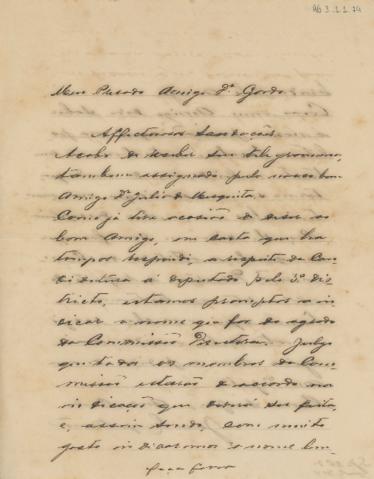 AG 3.1.1.74
Meu Presado Amigo Dr. Gordo
Affectuosas saudações
Acabo de receber seu telegramma,
tambem assignado pelo nosso bom
Amigo Dr. Julio de Mesquita.
Como já tive occasião de dizer ao
bom Amigo, em carta que ha
tempos respondi, a respeito da Can-
didatura á deputado pelo 3º dis-
tricto, estamos promptos a in-
dicar o nome que for do agrado
da Commissão Directora. Julgo
que todos os membros da Com-
missão estarão de accordo na
indicação que deverá ser feita,
e, assim sendo, com muito
gosto indicaremos o nome